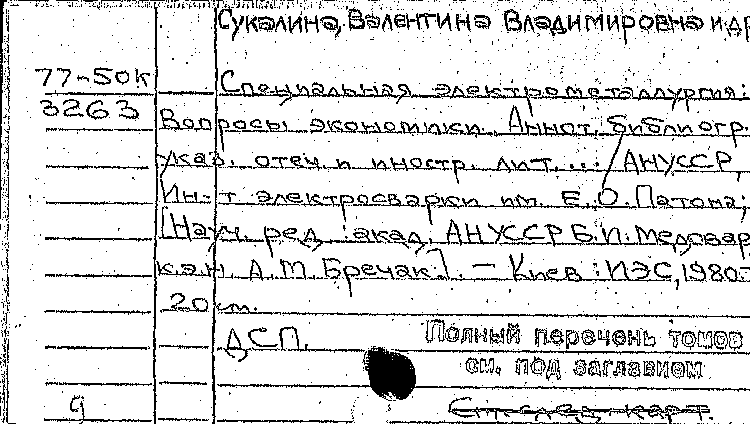 Сукалина, Валентина Владимировна и др
77-50к Специальная электрометаллургия:
3263 Вопросы экономики. Аннот. библиогр.
указ. отеч. и иностр. лит. ... АН УССР,
Ин-т электросварки им. Е. О. Патона;
[Науч. ред. акад. АН УССР Б. И. Медовар,
к.э.н. А. М. Бречак]. — Киев : ИЭС, 1980-
20 см.
ДСП. Полный перечень томов
см. под заглавием
9 См. след. карт.